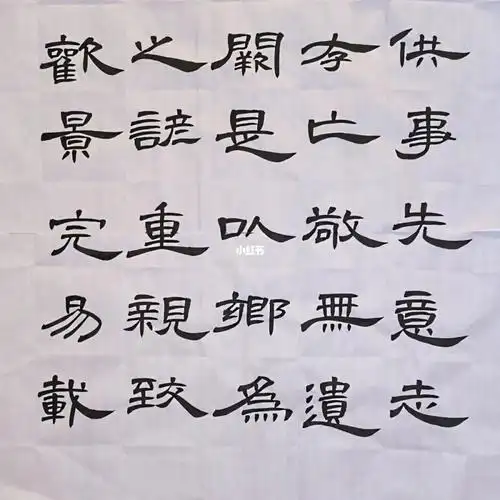 供事先意志
存亡敬無遺
闕是以鄉為
之諺重親致
歡景完易載
小红书